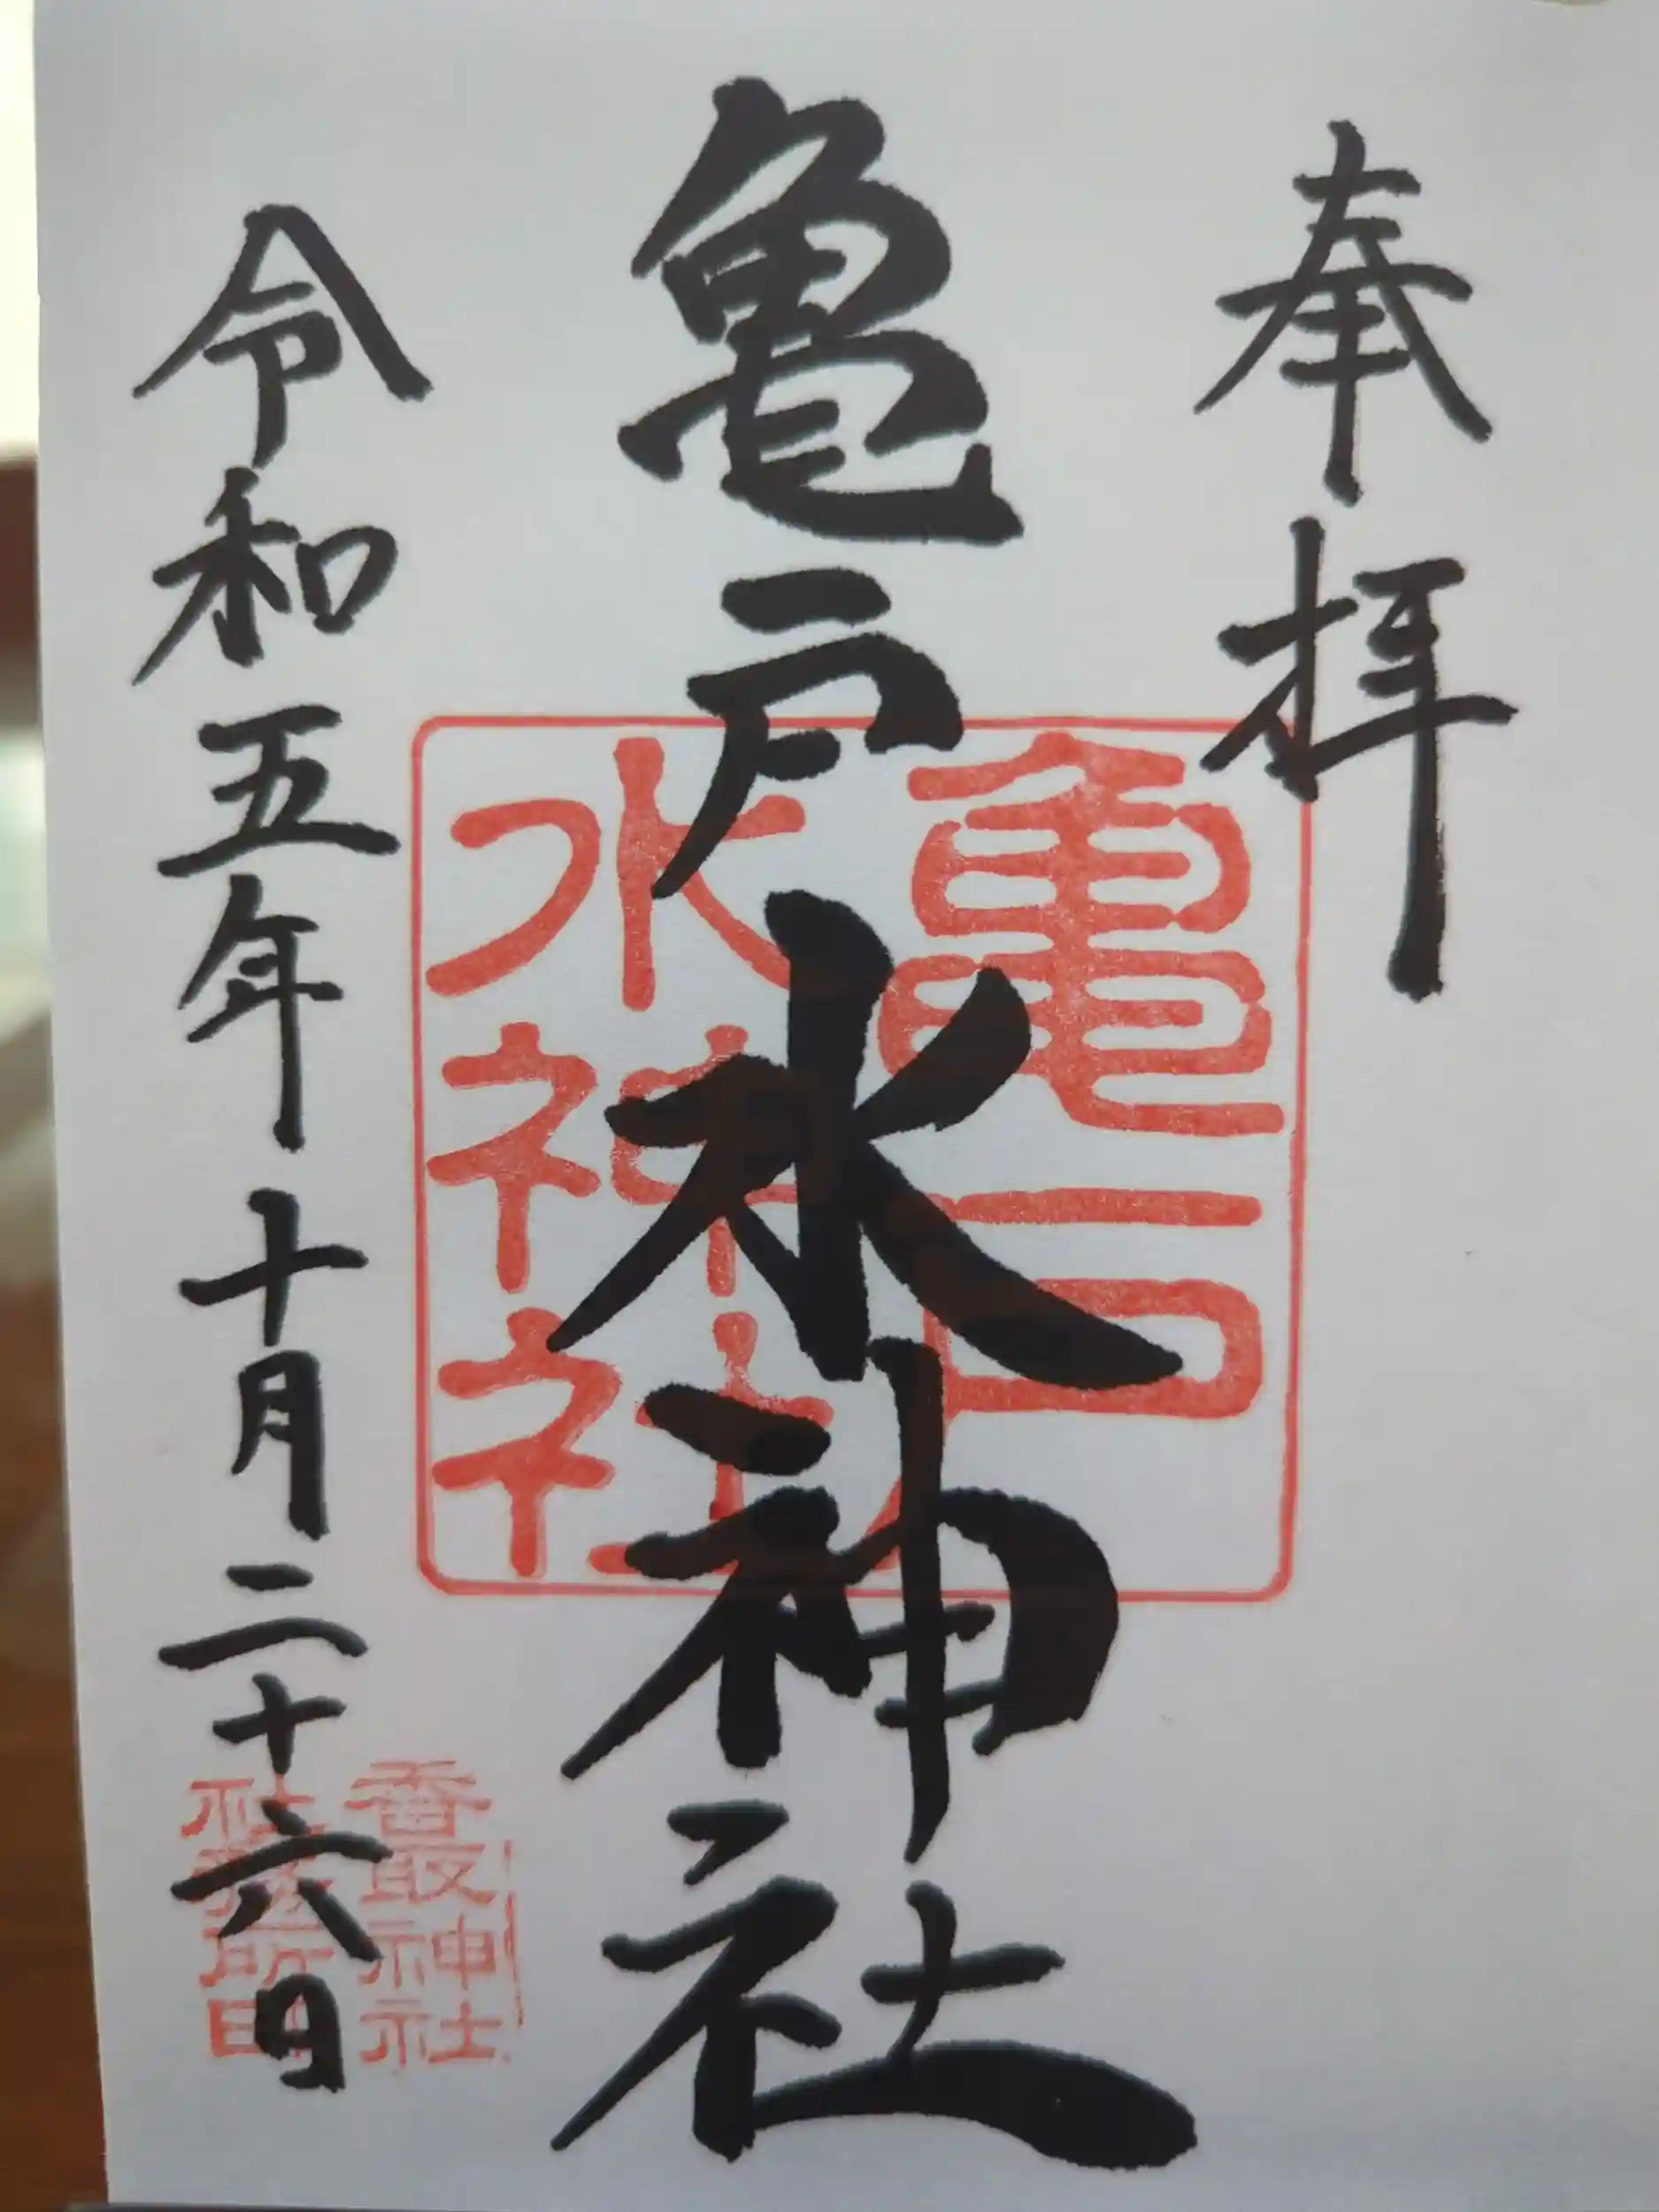 奉拝
亀戸水神社
亀戸
水神社
令和五年十月二十六日
香取神社
社務所印